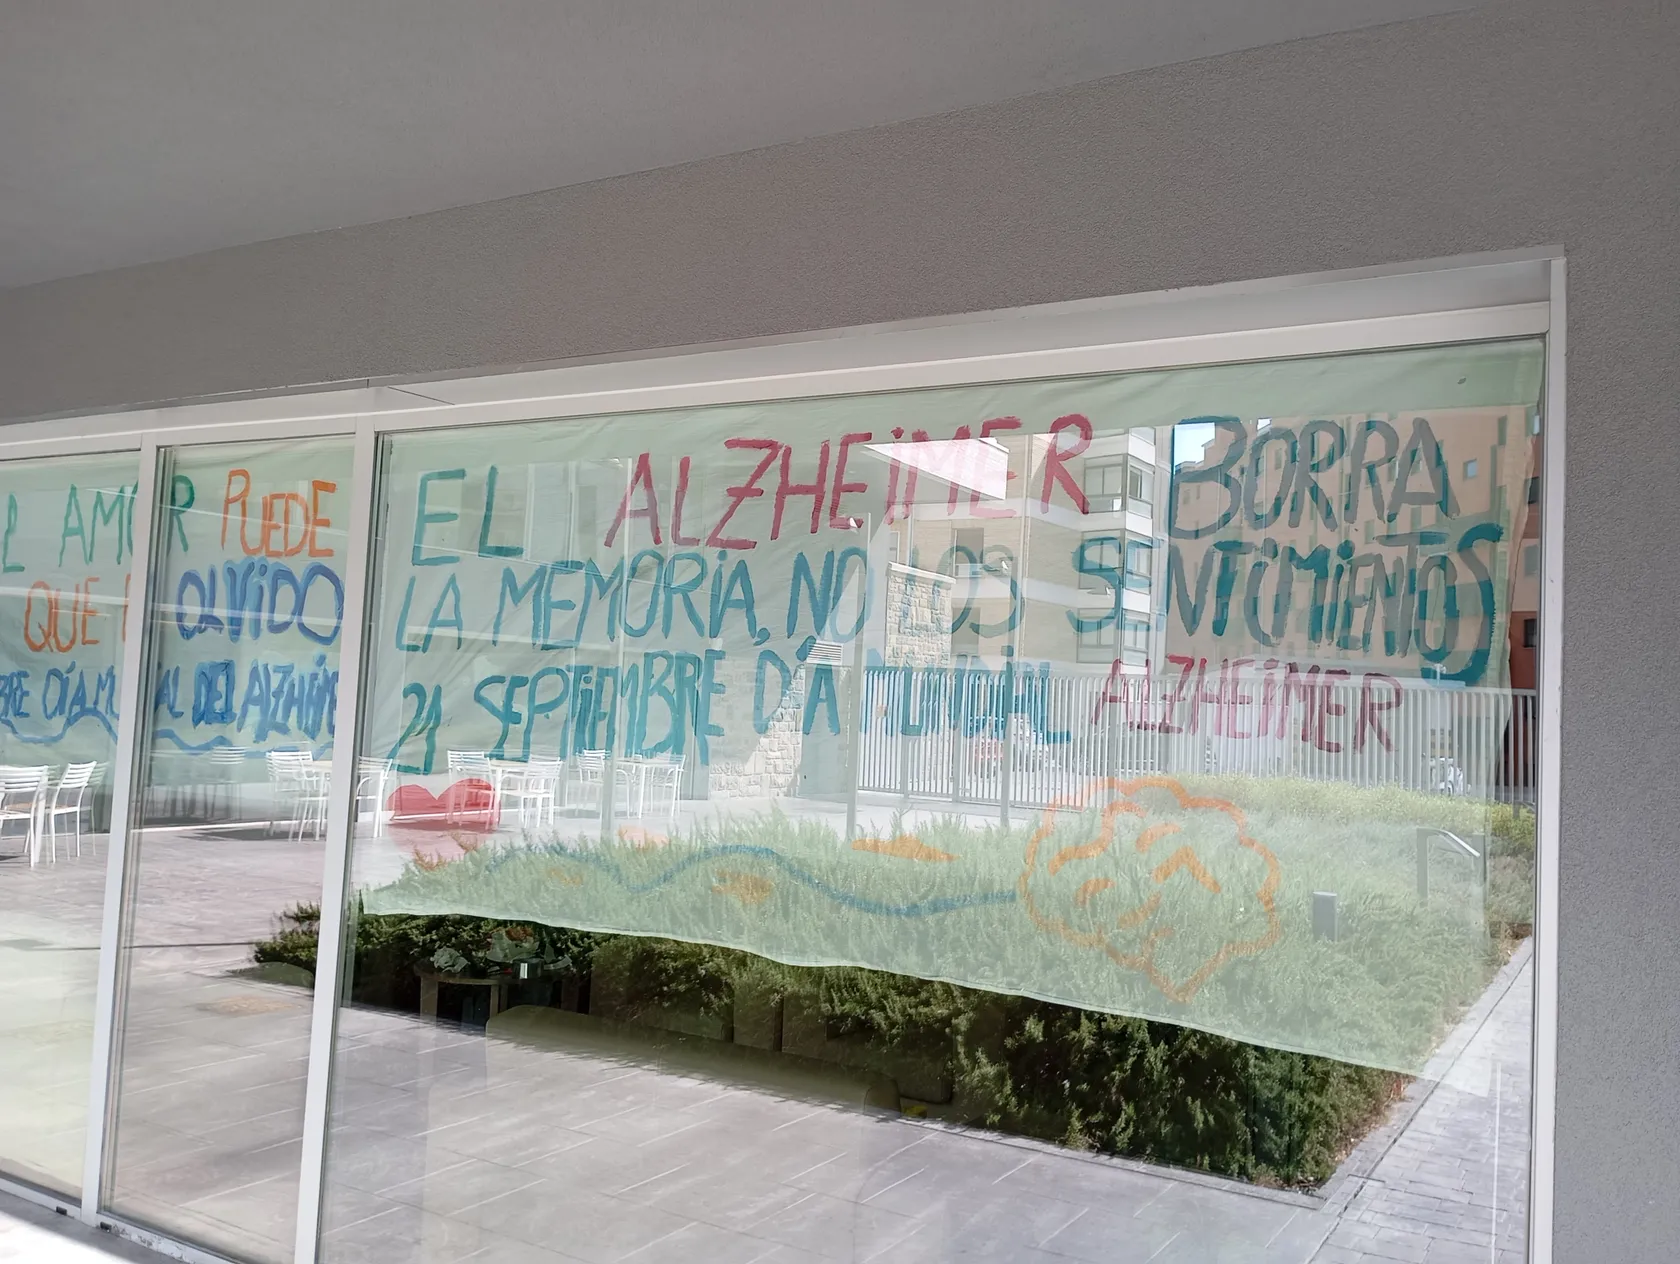 L AMOR PUEDE
QUE OLVIDO
BRE DÍA MUNDIAL DEL ALZHEIME
EL ALZHEIMER BORRA
LA MEMORIA, NO LOS SENTIMIENTOS
21 SEPTIEMBRE DÍA MUNDIAL ALZHEIMER